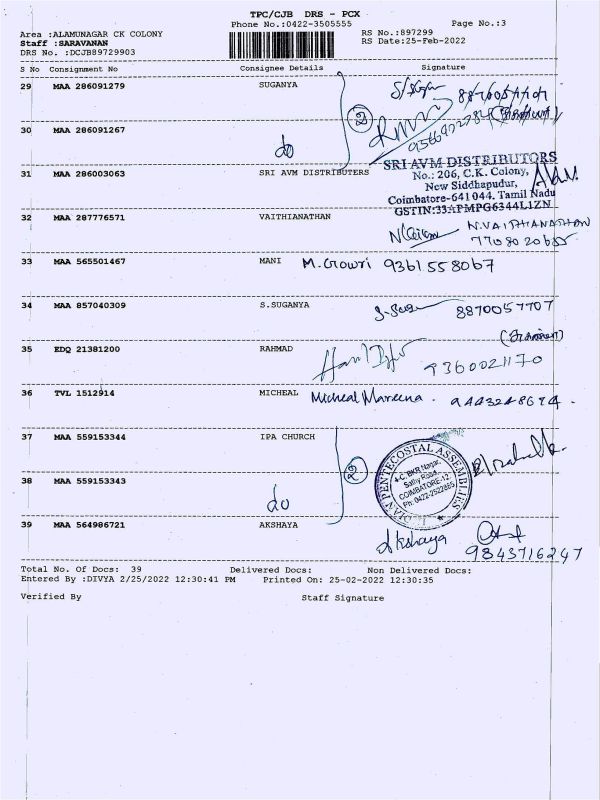 TPC/CJB DRS - PCX
Phone No.:0422-3505555
Page No.:3
Area :ALAMUNAGAR CK COLONY
RS No.:897299
Staff :SARAVANAN
RS Date:25-Feb-2022
DRS No. :DCJB89729903
S No Consignment No Consignee Details Signature
29 MAA 286091279 SUGANYA
2
30 MAA 286091267
do
31 MAA 286003063 SRI AVM DISTRIBUTERS
SRI AVM DISTRIBUTORS
No.: 206, C.K. Colony,
New Siddhapudur,
Coimbatore-641044. Tamil Nadu
GSTIN:33APMPG6344L1ZN
32 MAA 287776571 VAITHIANATHAN
N.VAITHIANATHAN
33 MAA 565501467 MANI M. Gowri 9361558067
34 MAA 857040309 S.SUGANYA 8870057707
35 EDQ 21381200 RAHMAD
9360021170
36 TVL 1512914 MICHEAL Micheal Mareena. 9443248674.
37 MAA 559153344 IPA CHURCH
2
INDIAN PENTECOSTAL ASSEMBLIES
4-C, BKR Nagar,
Sathy Road,
COIMBATORE-12.
Ph: 0422-2522885
38 MAA 559153343
do
39 MAA 564986721 AKSHAYA Akshaya
9843716247
Total No. Of Docs: 39 Delivered Docs: Non Delivered Docs:
Entered By :DIVYA 2/25/2022 12:30:41 PM Printed On: 25-02-2022 12:30:35
Verified By Staff Signature